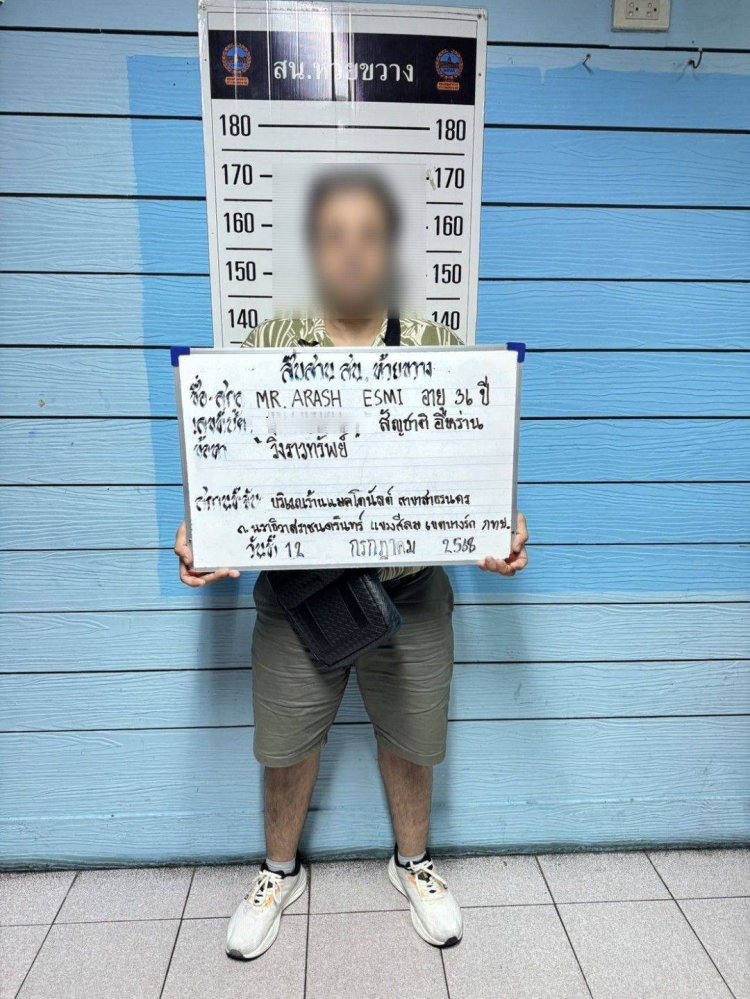 สน.ห้วยขวาง
180 180
170 170
160 160
150 150
140 140
สืบสวน สน. ห้วยขวาง
ชื่อ-สกุล MR. ARASH ESMI อายุ 36 ปี
เลขที่บัตร สัญชาติ อิหร่าน
ข้อหา "วิ่งราวทรัพย์"
สถานที่จับ บริเวณร้านแมคโดนัลด์ สาขาสาธรนคร
ถ.นราธิวาสราชนครินทร์ แขวงสีลม เขตบางรัก กทม.
วันที่ 12 กรกฎาคม 2568